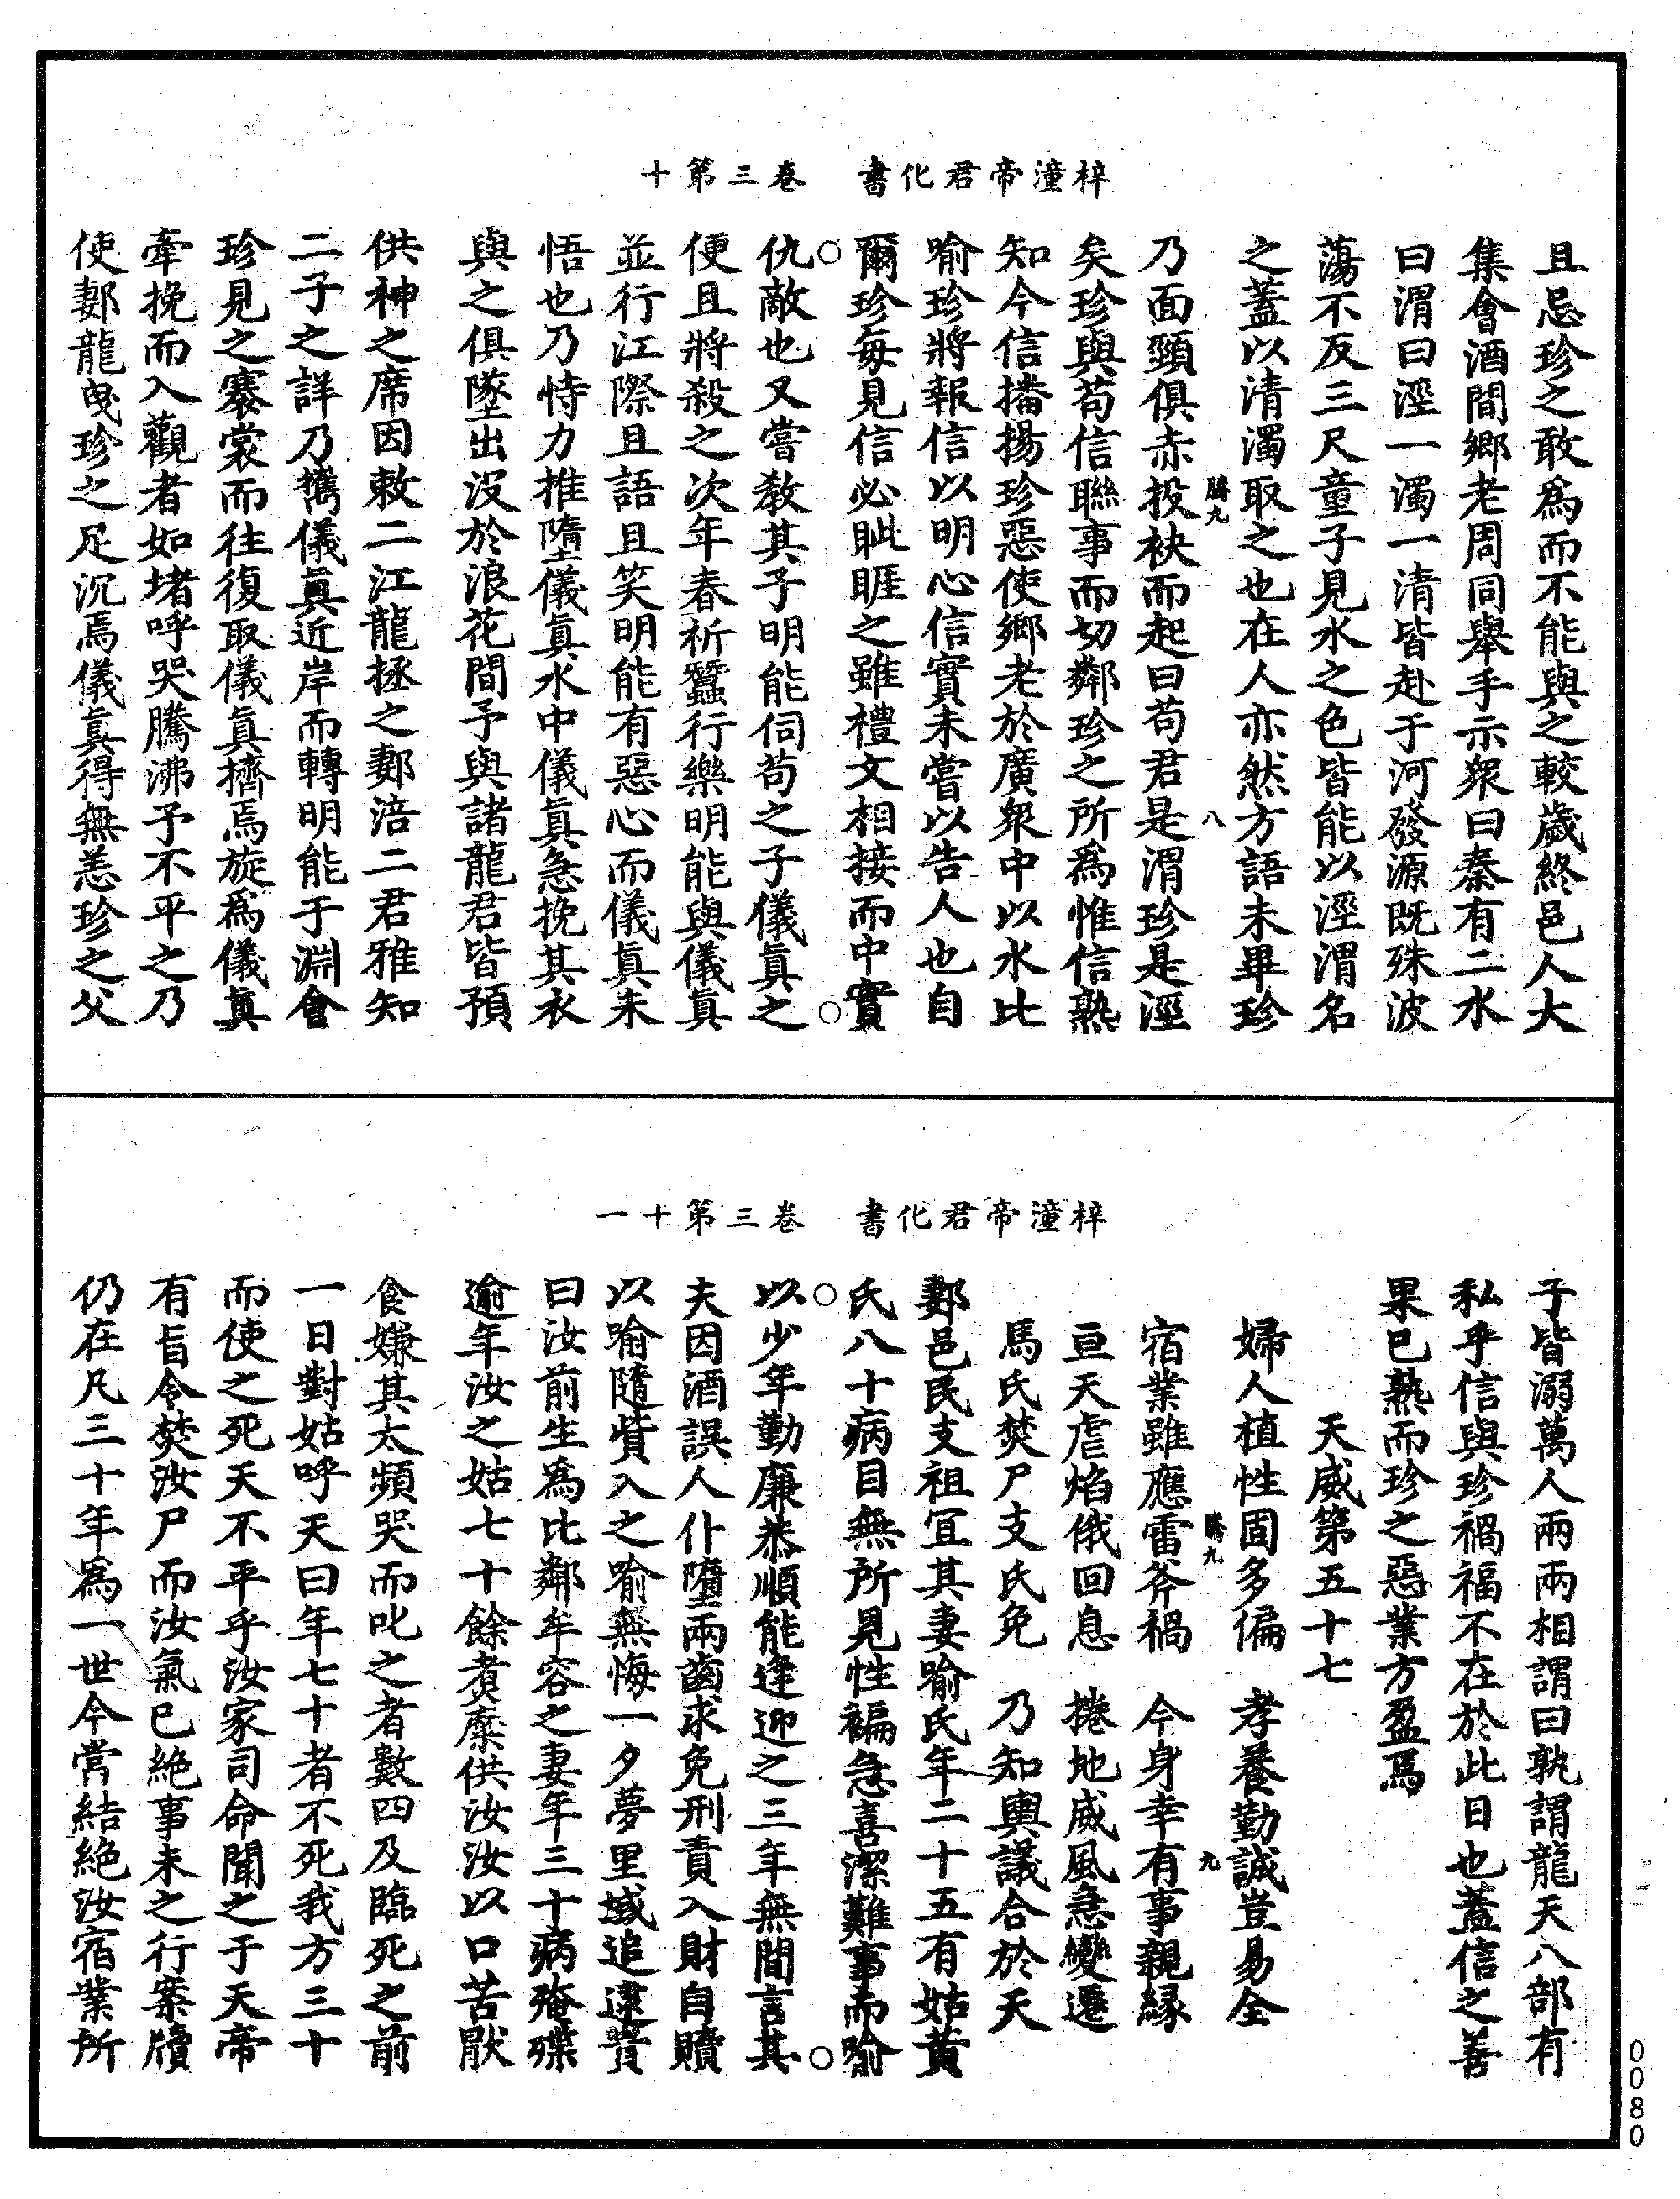 梓潼帝君化書　卷三第十
且忌珍之敢為而不能與之較歲終邑人大
集會酒間鄉老周同舉手示眾曰秦有二水
曰渭曰涇一濁一清皆赴于河發源既殊波
蕩不反三尺童子見水之色皆能以涇渭名
之蓋以清濁取之也在人亦然方語未畢珍
騰九　八
乃面頸俱赤投袂而起曰苟君是渭珍是涇
矣珍與苟信聯事而切鄰珍之所為惟信熟
知今信播揚珍惡使鄉老於廣眾中以水比
喻珍將報信以明心信實未嘗以告人也自
爾珍每見信必眦睚之雖禮文相接而中實
仇敵也又嘗教其子明能伺苟之子儀真之
便且將殺之次年春祈蠶行樂明能與儀真
並行江際且語且笑明能有惡心而儀真未
悟也乃恃力推墮儀真水中儀真急挽其衣
與之俱墜出沒於浪花間予與諸龍君皆預
供神之席因敕二江龍拯之鄞涪二君雅知
二子之詳乃攜儀真近岸而轉明能于淵會
珍見之褰裳而往復取儀真擠焉旋為儀真
牽挽而入觀者如堵呼哭騰沸予不平之乃
使鄞龍曳珍之足沉焉儀真得無恙珍之父
梓潼帝君化書　卷三第十一
子皆溺萬人兩兩相謂曰孰謂龍天八部有
私乎信與珍禍福不在於此日也蓋信之善
果已熟而珍之惡業方盈焉
天威第五十七
婦人植性固多偏　孝養勤誠豈易全
騰九　九
宿業雖應雷斧禍　今身幸有事親緣
亘天虐焰俄回息　捲地威風急變遷
馬氏焚尸支氏免　乃知輿議合於天
鄞邑民支祖宜其妻喻氏年二十五有姑黃
氏八十病目無所見性褊急喜潔難事而喻
以少年勤廉恭順能逢迎之三年無間言其
夫因酒誤人仆墮兩齒求免刑責入財自贖
以喻隨貲入之喻無悔一夕夢里域追逮責
曰汝前生為比鄰牟容之妻年三十病殗殜
逾年汝之姑七十餘煑糜供汝汝以口苦厭
食嫌其太頻哭而叱之者數四及臨死之前
一日對姑呼天曰年七十者不死我方三十
而使之死天不平乎汝家司命聞之于天帝
有旨令焚汝尸而汝氣已絕事未之行案牘
仍在凡三十年為一世今當結絕汝宿業所
0080